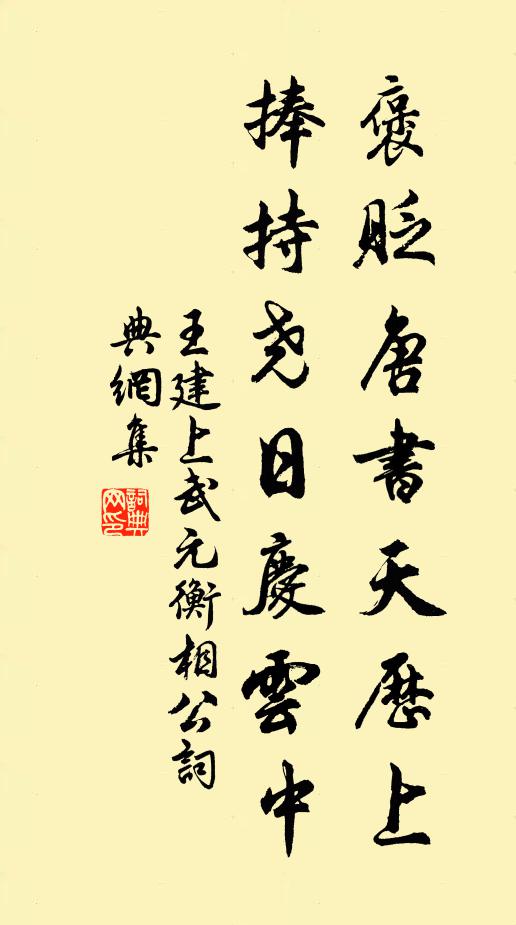 褒貶唐書天歷上
捧持尧日慶雲中
王建上武元衡相公詞
典網集
詞典網印